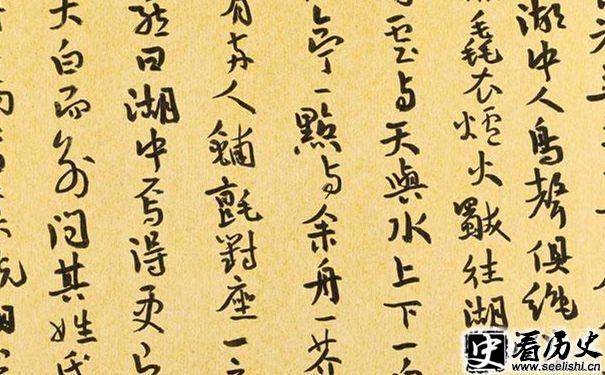 湖中人鳥聲俱絕
毳衣爐火獨往湖
雲与天與水上下一
亭一點与余舟一芥
人鋪氈對座一
曰湖中焉得更
大白而別問其姓氏
史 看历史
www.seelishi.cn